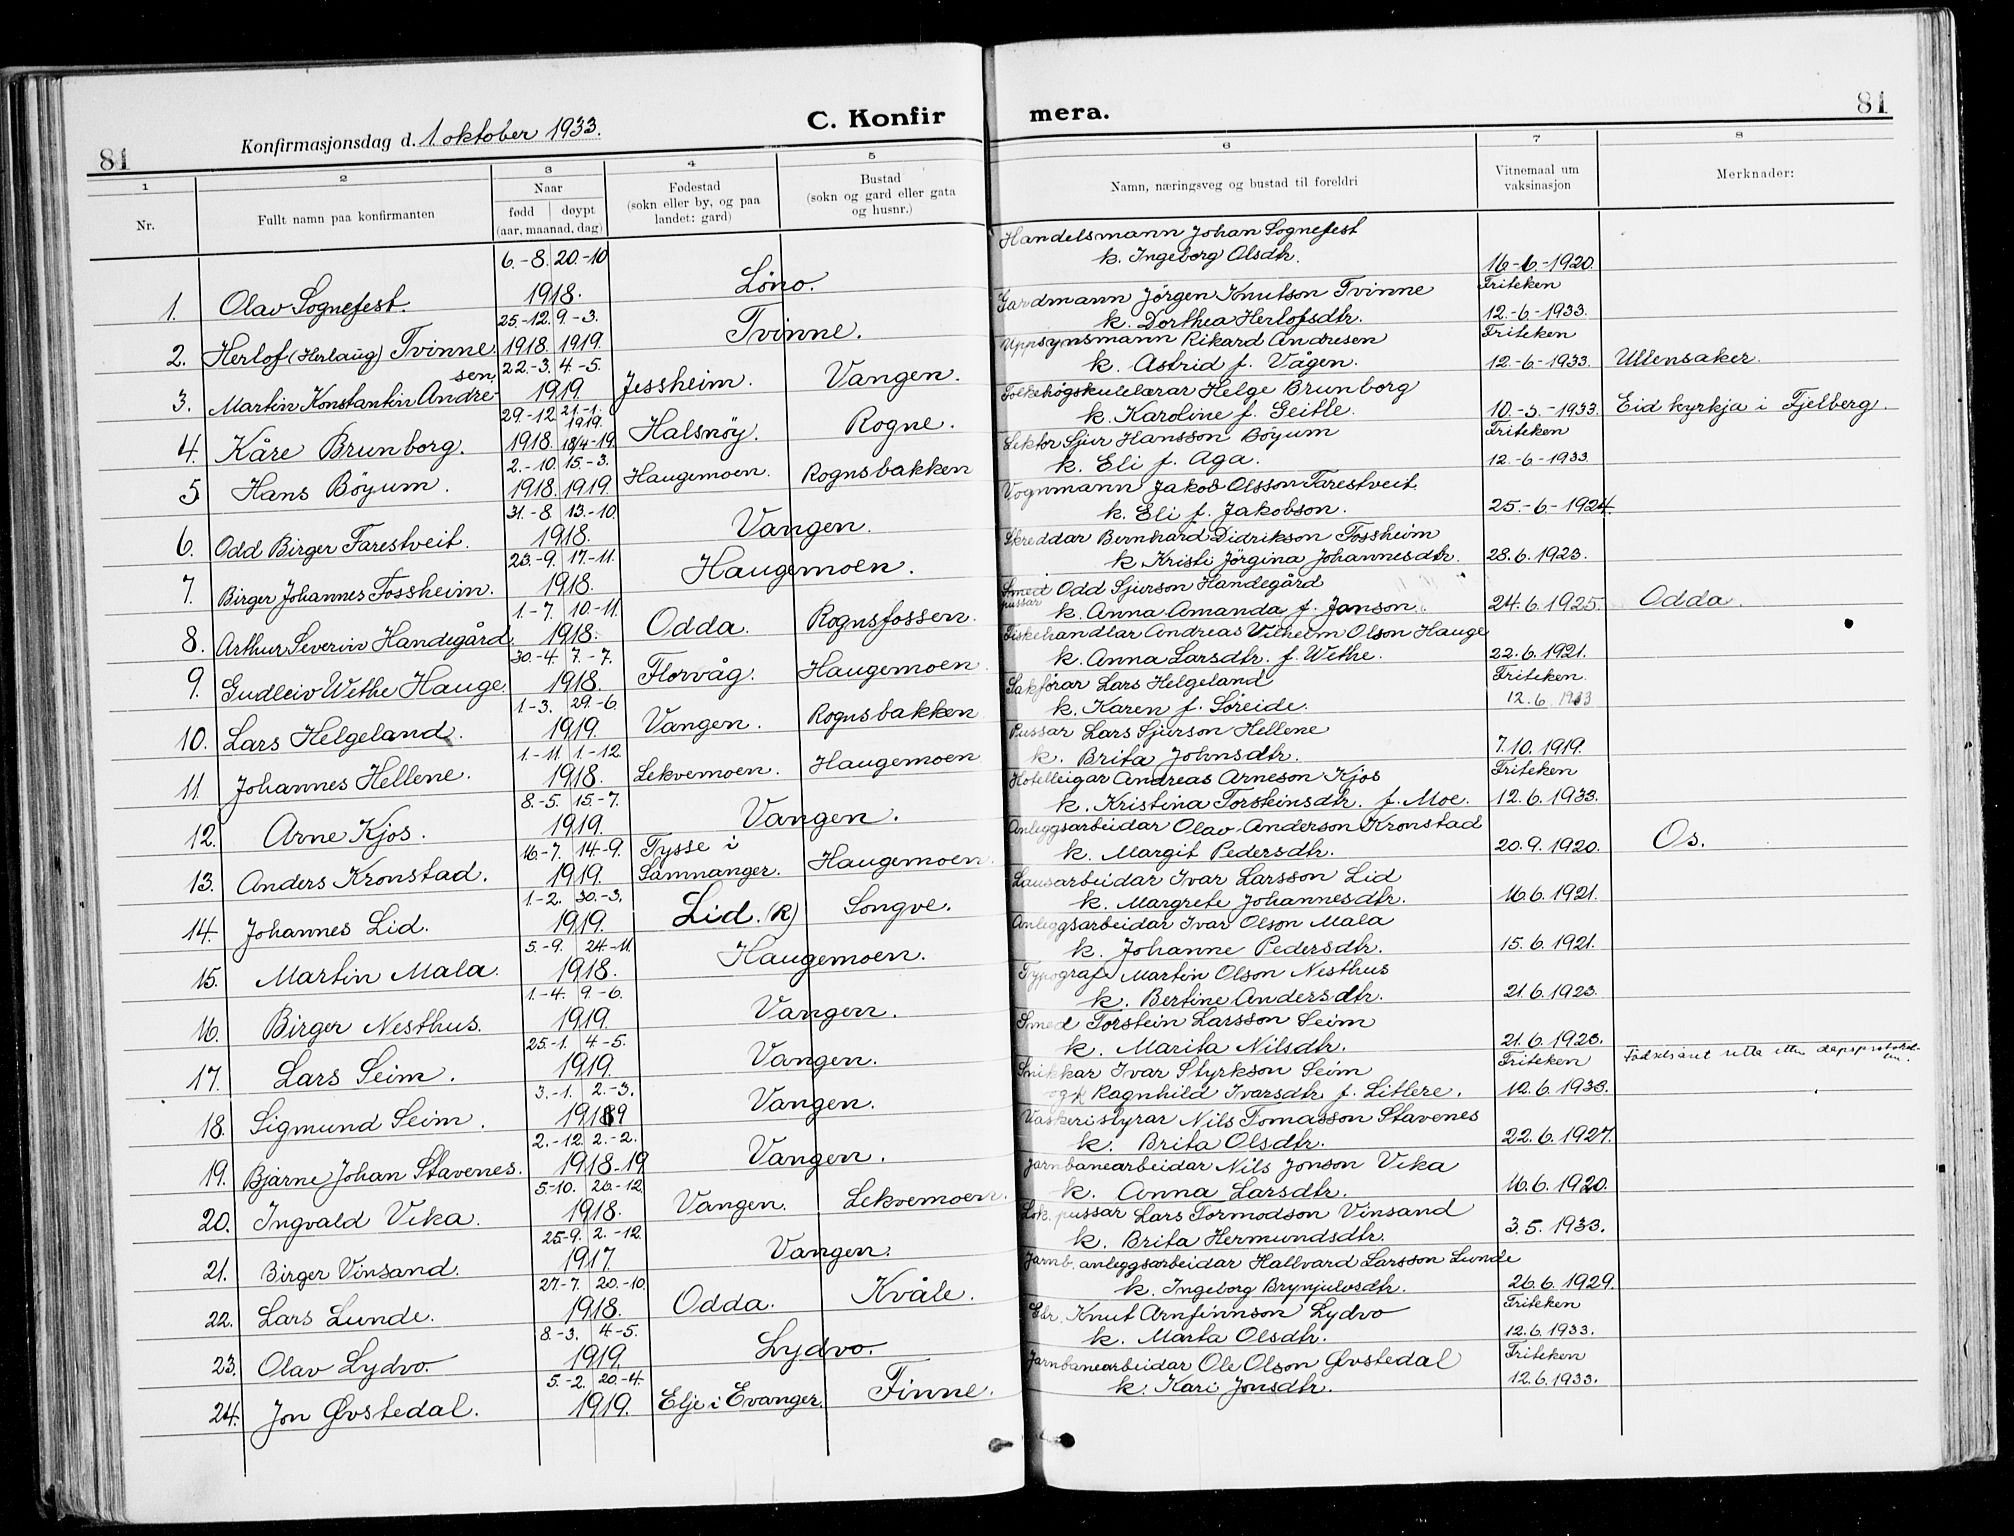 81
Konfirmasjonsdag d. 1. oktober 1933.
C. Konfir
mera.
81
1 2 3 4 5 6 7 8
Nr.
Fullt namn paa konfirmanten
Naar
fødd døypt
(aar, maanad, dag)
Fødestad
(sokn eller by, og paa
landet: gard)
Bustad
(sokn og gard eller gata
og husnr.)
Namn, næringsveg og bustad til foreldri
Vitnemaal um
vaksinasjon
Merknader:
1. Olav Sognefest. 6.-8. 20.-10 1918. Löno. Handelsmann Johan Sognefest
k. Ingeborg Olsdtr. 16-6-1920.
2. Herlof (Herlaug) Tvinne 25.-12. 9.-3. 1918. 1919. Tvinne. Gardmann Jörgen Knutson Tvinne
k. Dorthea Herlofsdtr. Friteken 12.-6-1933.
3. Martin Konstantin Andresen 22.-3. 4.-5. 1919. Jessheim. Vangen. Uppsynsmann Rikard Andresen
k. Astrid f. Vågen. Friteken 12.-6-1933. Ullensaker.
4. Kåre Brunborg. 29.-12. 21.-1. 1919. 1918. 18/4-19. Halsnöy. Rogne. Folkehögskulelærar Helge Brunborg
k. Karoline f. Geitle. 10.-5.-1933. Eid kyrkja i Fjelberg.
5 Hans Böyum. 2.-10. 15.-3. 1918. 1919. Haugemoen. Rognsbakken Lektor Sjur Hansson Böyum
k. Eli f. Aga. Friteken 12.-6-1933.
6. Odd Birger Farestveit. 31.-8. 13.-10. 1918. Vangen. Vognmann Jakob Olsson Farestveit.
k. Eli f. Jakobson. 25.-6-1924.
7. Birger Johannes Fossheim. 23.-9. 17.-11. 1918. Haugemoen. Skreddar Bernhard Didrikson Fossheim
k. Kristi Jörgina Johannesdtr. 28.6.1923.
8. Arthur Severin Handegård. 1.-7. 10.-11. 1918. Odda. Rognsfossen. Smed pussar Odd Sjurson Handegård
k. Anna Amanda f. Janson. 24.6.1925. Odda.
9. Gudleiv Wethe Hauge. 30.-4. 7.-7. 1918. Florvåg. Haugemoen. Fiskehandlar Andreas Vilhelm Olson Hauge
k. Anna Larsdtr. f. Wethe. 22.6.1921.
10. Lars Helgeland. 1.-3. 29.-6. 1919. Vangen. Rognsbakken Sakförar Lars Helgeland
k. Karen f. Söreide. Friteken. 12.6.1933
11. Johannes Hellene. 1.-11. 1.-12. 1918. Lekvemoen. Haugemoen Pussar Lars Sjurson Hellene
k. Brita Johnsdtr. 7.10.1919.
12. Arne Kjos. 8.-5. 15.-7. 1919. Vangen. Hotelleigar Andreas Arneson Kjos
k. Kristina Torsteinsdtr. f. Moe. Friteken 12.6.1933.
13. Anders Kronstad. 16.-7. 14.-9. 1919. Tysse i Samnanger. Haugemoen Anleggsarbeidar Olav Anderson Kronstad
k. Margit Pedersdtr. 20.9.1920. Os.
14. Johannes Lid. 1.-2. 30.-3. 1919. Lid. (R) Songve. Lausarbeidar Ivar Larsson Lid
k. Margrete Johannesdtr. 16.6.1921.
15. Martin Mala. 5.-9. 24.-11. 1918. Haugemoen. Anleggsarbeidar Ivar Olson Mala
k. Johanne Pedersdtr. 15.6.1921.
16. Birger Nesthus. 1.-4. 9.-6. 1919. Vangen. Typograf Martin Olson Nesthus
k. Bertine Andersdtr. 21.6.1923.
17. Lars Seim. 25.-1. 4.-5. 1919. Vangen. Smed Torstein Larsson Seim
k. Marita Nilsdtr. 21.6.1923.
18. Sigmund Seim. 3.-1. 2.-3. 1919 Vangen. Snikkar Ivar Styrkson Seim
og k Ragnhild Ivarsdtr. f. Litlere. Friteken 12.6.1933. Födselsåret retta etter dåpsprotokollen.
19. Bjarne Johan Stavenes. 2.-12. 2.-2. 1918-19 Vangen. Vaskeristyrar Nils Tomasson Stavenes
k. Brita Olsdtr. 22.6.1927.
20. Ingvald Vika. 5.-10. 26.-12. 1918. Vangen. Lekvemoen Jarnbanearbeidar Nils Jonson Vika
k. Anna Larsdtr. 16.6.1920.
21. Birger Vinsand. 25.-9. 2.-12. 1917. Vangen. Lok. pussar Lars Tormodson Vinsand
k. Brita Hermundsdtr. 3.5.1933.
22. Lars Lunde. 27.-7. 20.-10. 1918. Odda. Kvåle. Jarnb. anleggsarbeidar Hallvard Larsson Lunde
k. Ingeborg Brynjulvsdtr. 26.6.1929.
23. Olav Lydvo. 8.-3. 4.-5. 1919. Lydvo. Gbr. Knut Arnfinnson Lydvo
k. Marta Olsdtr. Friteken 12.6.1933.
24. Jon Øvstedal. 5.-2. 20.-4. 1919. Elje i Evanger. Finne. Jarnbanearbeidar Ole Olson Øvstedal
k. Kari Jonsdtr. Friteken 12.6.1933.